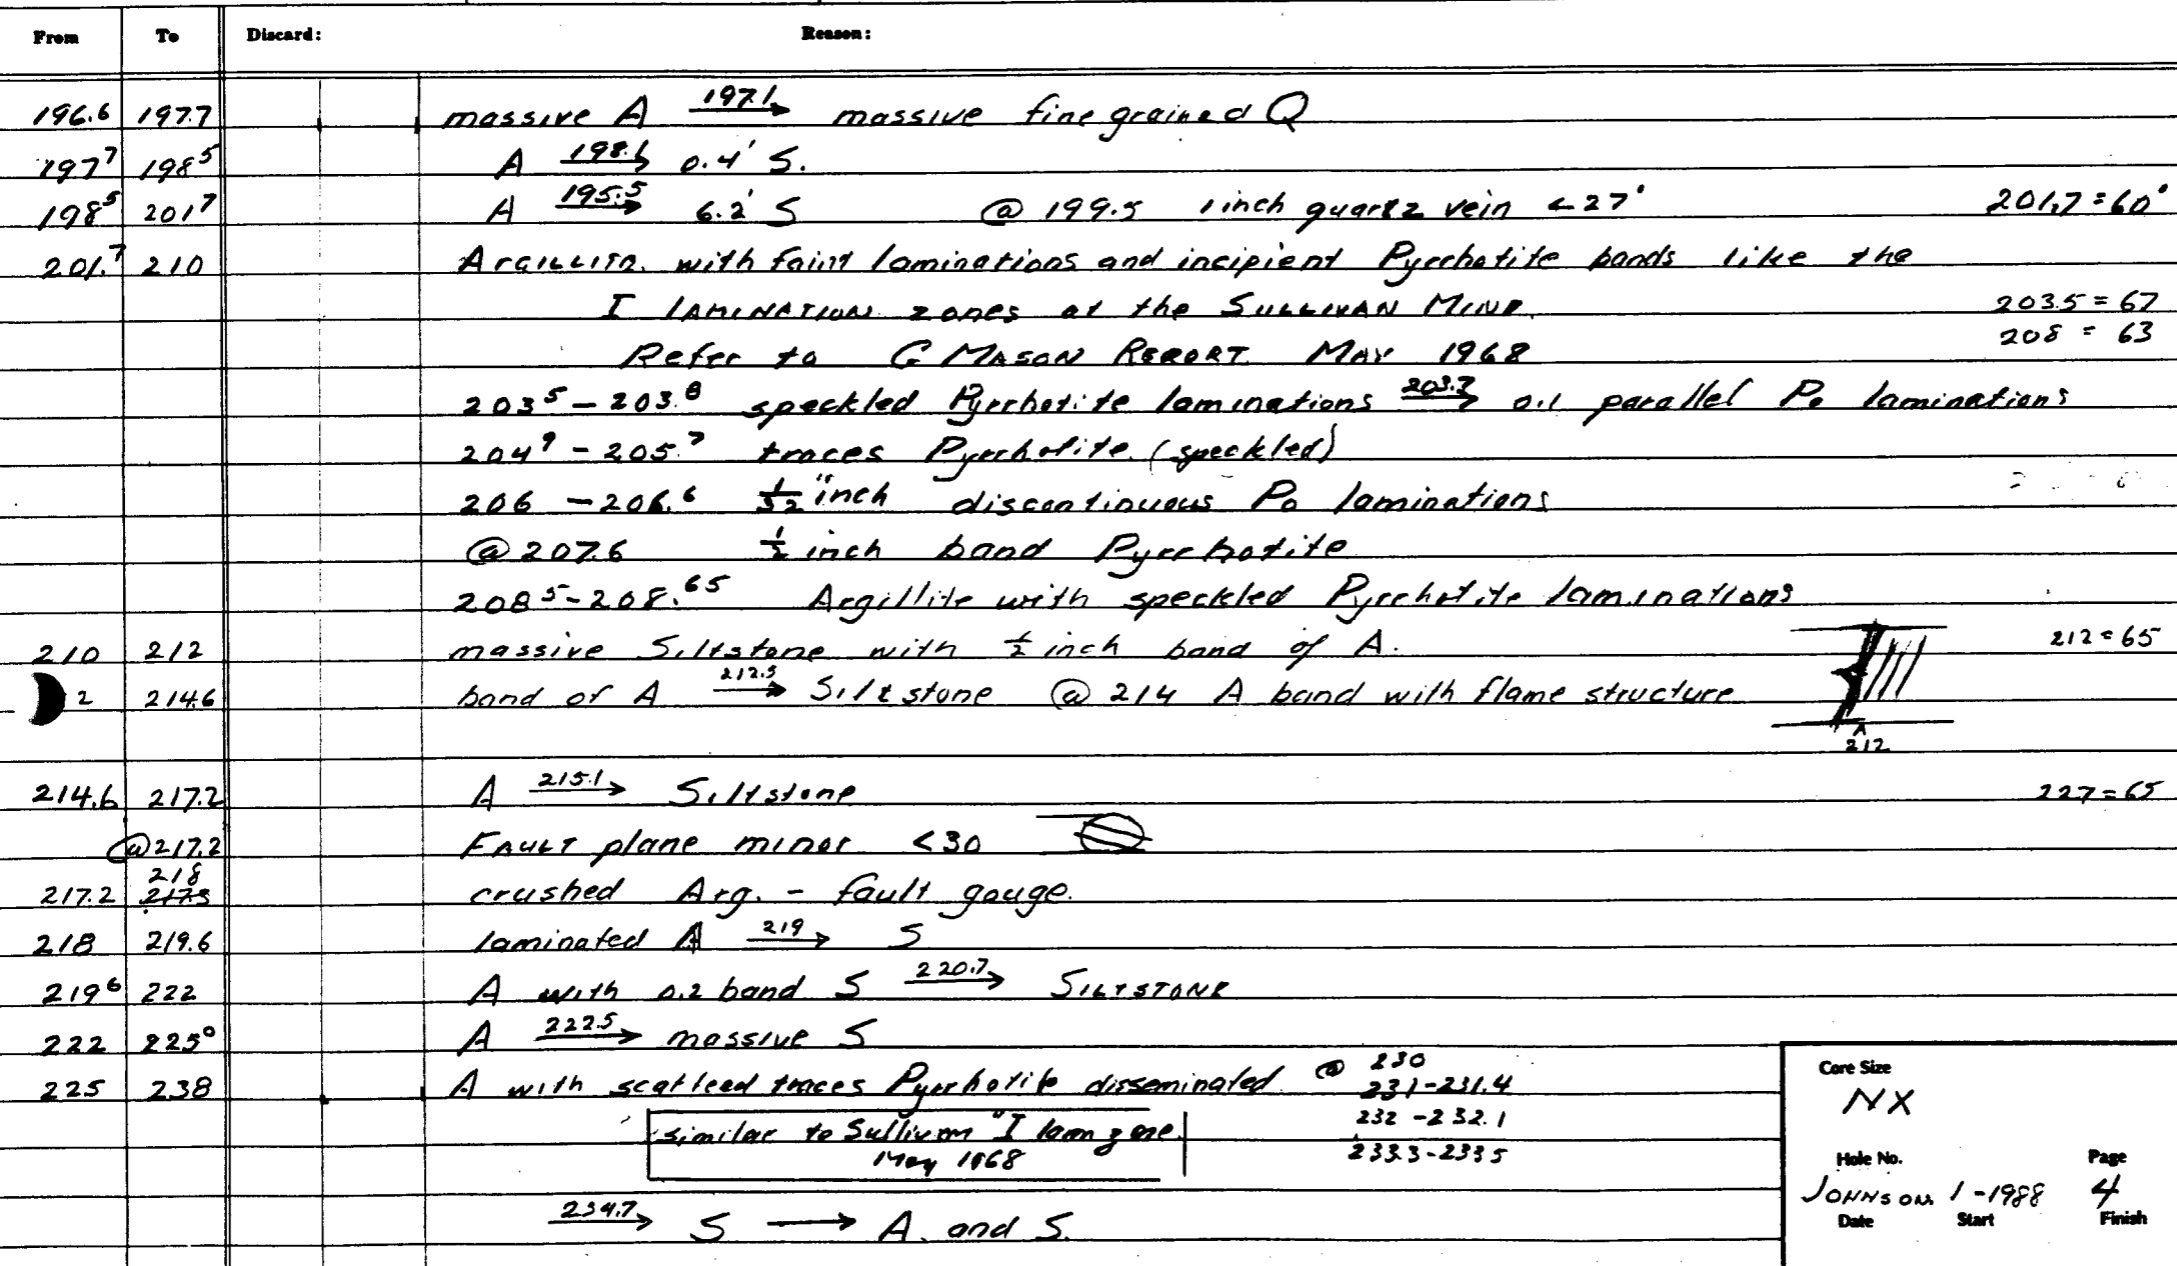 From To Discard: Reason:
196.6 197.7 massive A 197.1→ massive fine grained Q
197⁷ 198⁵ A 198.1→ 0.4' S.
198⁵ 201⁷ A 195.5→ 6.2' S @ 199.5 1 inch quartz vein <27° 201.7=60°
201.⁷ 210 ARGILLITE. with faint laminations and incipient Pyrrhotite bands like the
I LAMINATION zones at the SULLIVAN MINE. 203.5=67
208 = 63
Refer to G MASON REPORT. MAY 1968
203⁵-203.⁸ speckled Pyrrhotite laminations 203.7→ 0.1 parallel Po laminations
204⁹-205.⁷ traces Pyrrhotite. (speckled)
206 -206.⁶ 1/32" inch discontinuous Po laminations
@ 207.6 1/2 inch band Pyrrhotite
208⁵-208.⁶⁵ Argillite with speckled Pyrrhotite laminations
210 212 massive Siltstone with 1/2 inch band of A. 212=65
2 214.6 band of A 212.5→ Siltstone @ 214 A band with flame structure
A
212
214.6 217.2 A 215.1→ Siltstone 227=65
@217.2 FAULT plane minor <30
218
217.2 217.5 crushed Arg. - fault gouge.
218 219.6 laminated A 219→ S
219⁶ 222 A with 0.2 band S 220.7→ SILTSTONE
222 225⁰ A 222.5→ massive S
225 238 A with scattered traces Pyrrhotite disseminated @ 230
231-231.4
232-232.1
233.3-233.5
similar to Sullivan "I lam zone.
May 1968
234.7→ S → A. and S.
Core Size
NX
Hole No. Page
JOHNSON 1-1988 4
Date Start Finish